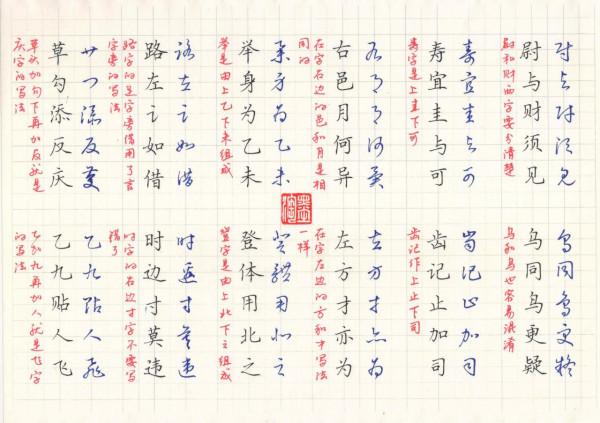 尉与财须见
尉与财须见
尉和财两字要分清楚
寿宜圭与可
寿宜圭与可
寿字是上圭下可
右邑月何异
右邑月何异
在字右边的邑和月是相
同的
举身为乙未
举身为乙未
举是由上乙下未组成
路左讠如借
路左讠如借
路字的足字旁借用了言
字旁的写法
草勾添反庆
草勾添反庆
草头加勾下再加反就是
庆字的写法
乌同鸟更疑
乌同鸟更疑
乌和鸟也容易混淆
齿记止加司
齿记止加司
齿记作上止下司
左方才亦为
左方才亦为
在字左边的方和才写法
一样
登体用北之
登体用北之
登字是由上北下之组成
时边寸莫违
时边寸莫违
时字的右边寸字不要写
错了
乙九贴人飞
乙九贴人飞
乙加九再加人就是飞字
的写法